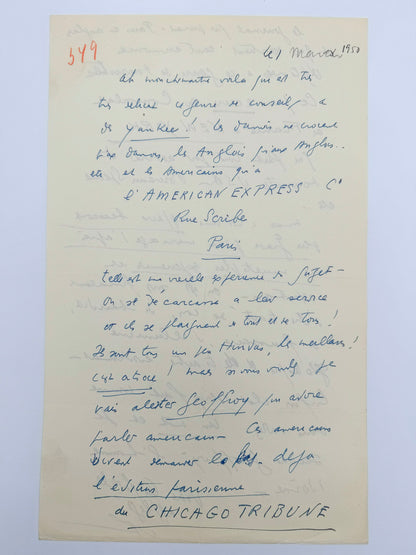 549
le 1 Mars 1950
Ah voilà qui est très
très ce genre de conseil a
des yankee ! les Danois ne croient
aux Danois, les Anglois aux Anglois..
et les Americains qu'a
l'AMERICAN EXPRESS Co
Rue Scribe
Paris
telle est ma vieille experience du sujet -
on se décarcasse a leur service
et ils se plaignent de tout et de tous !
Ils sont tous un peu Hindus, les meilleurs !
! mais si vous voulez je
vais alerter Geoffroy qui adore
parler americain - Ces americains
doivent demeurer - deja
l'édition parisienne
du CHICAGO TRIBUNE